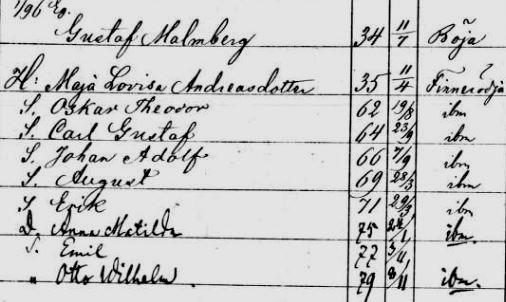 1/96 Eg.
Gustaf Malmberg 34 11/7 Böja
H: Maja Lovisa Andreasdotter 35 11/4 Finnerödja
S. Oskar Theodor 62 19/8 ibm
S. Carl Gustaf 64 23/9 ibm
S. Johan Adolf 66 7/9 ibm
S. August 69 28/3 ibm
S Erik 71 29/3 ibm
D. Anna Matilda 75 24/1 ibm.
S. Emil 77 5/11
" Otto Wilhelm. 79 8/11 ibm.